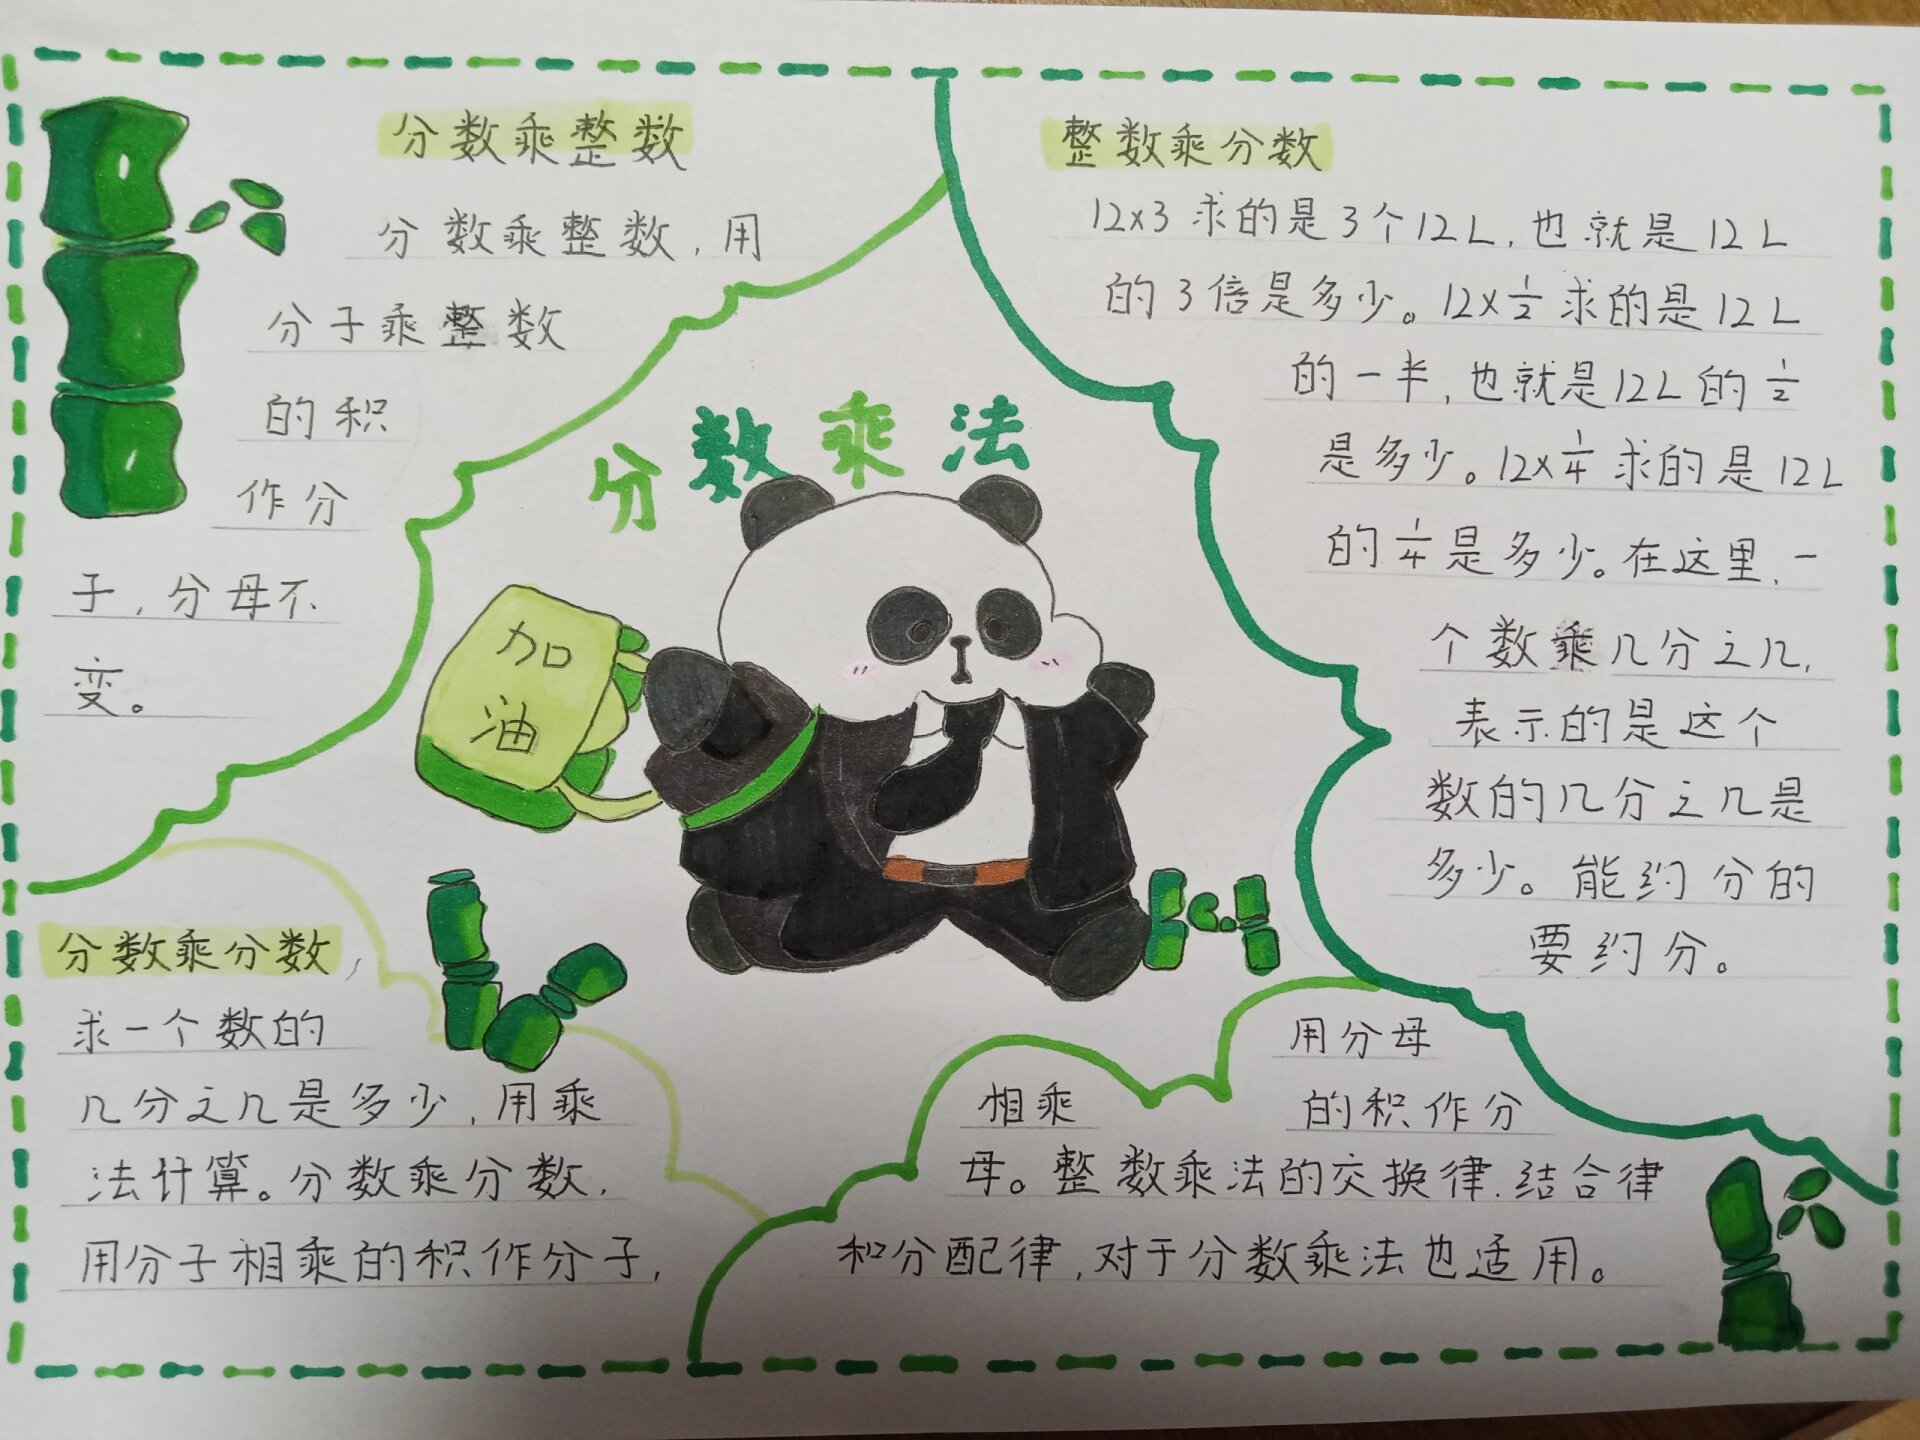 分数乘整数
分数乘整数,用
分子乘整数
的积
作分
子,分母不
变。
整数乘分数
12×3求的是3个12L,也就是12L
的3倍是多少。12×1/2求的是12L
的一半,也就是12L的1/2
是多少。12×1/4求的是12L
的1/4是多少。在这里,一
个数乘几分之几,
表示的是这个
数的几分之几是
多少。能约分的
要约分。
分数乘法
加
油
分数乘分数,
求一个数的
几分之几是多少,用乘
法计算。分数乘分数,
用分子相乘的积作分子,
用分母
相乘 的积作分
母。整数乘法的交换律.结合律
和分配律,对于分数乘法也适用。